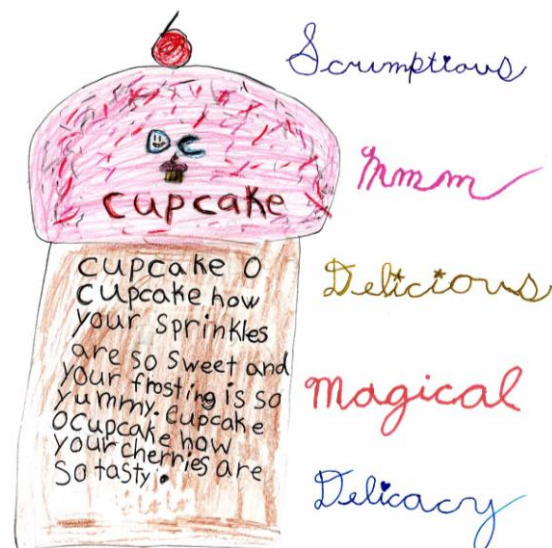 DC
cupcake
cupcake O
cupcake how
your sprinkles
are so sweet and
your frosting is so
yummy. Cupcake
O cupcake how
your cherries are
so tasty.
Scrumptious
Mmm
Delicious
Magical
Delicacy